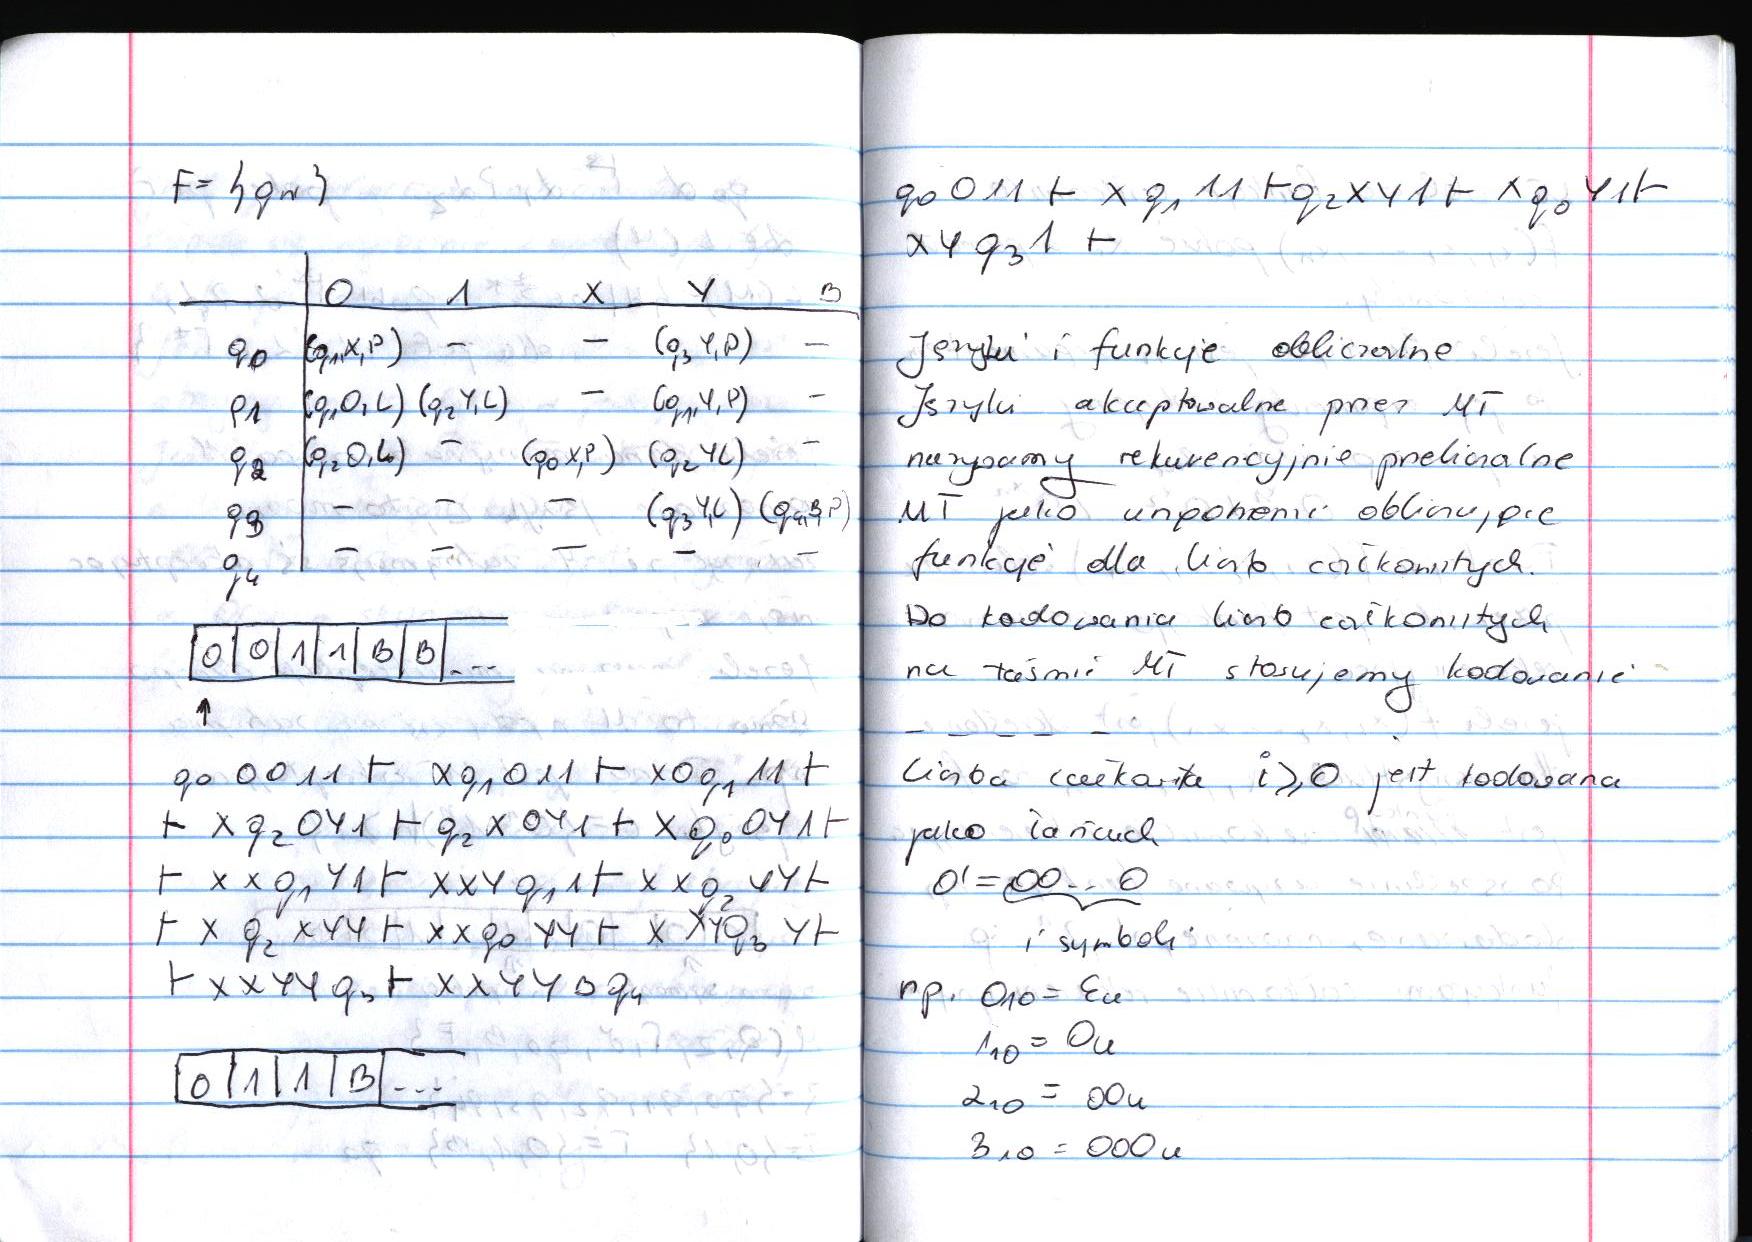 F = {q4}
0 1 X Y B
q0 (q1,X,P) - - (q3 Y,P) -
q1 (q1,0,L) (q2 Y,L) - (q1,Y,P) -
q2 (q2 0,L) - (q0 X,P) (q2 Y L) -
q3 - - - (q3 Y,L) (q4,B,P)
q4 - - - - -
0 0 1 1 B B ...
↑
q0 0011 ⊢ xq1 011 ⊢ x0q1 11 ⊢
⊢ xq2 0Y1 ⊢ q2 x0Y1 ⊢ xq0 0Y1 ⊢
⊢ xxq1 Y1 ⊢ xxYq1 1 ⊢ xxq2 YY ⊢
⊢ xq2 xYY ⊢ xxq0 YY ⊢ xXYq3 Y ⊢
⊢ xxYYq3 ⊢ xxYYBq4
0 1 1 B ...
q0 011 ⊢ xq1 11 ⊢ q2 xY1 ⊢ xq0 Y1 ⊢
xYq3 1 ⊢
Języki i funkcje obliczalne
Języki akceptowalne przez MT
nazywamy rekurencyjnie przeliczalne
MT jako urządzenie obliczające
funkcje dla liczb całkowitych.
Do kodowania liczb całkowitych
na taśmie MT stosujemy kodowanie
- - - - -
Liczba całkowita i ≥ 0 jest kodowana
jako łańcuch
0^i = 00...0
i symboli
np. 0₁₀ = εu
1₁₀ = 0u
2₁₀ = 00u
3₁₀ = 000u